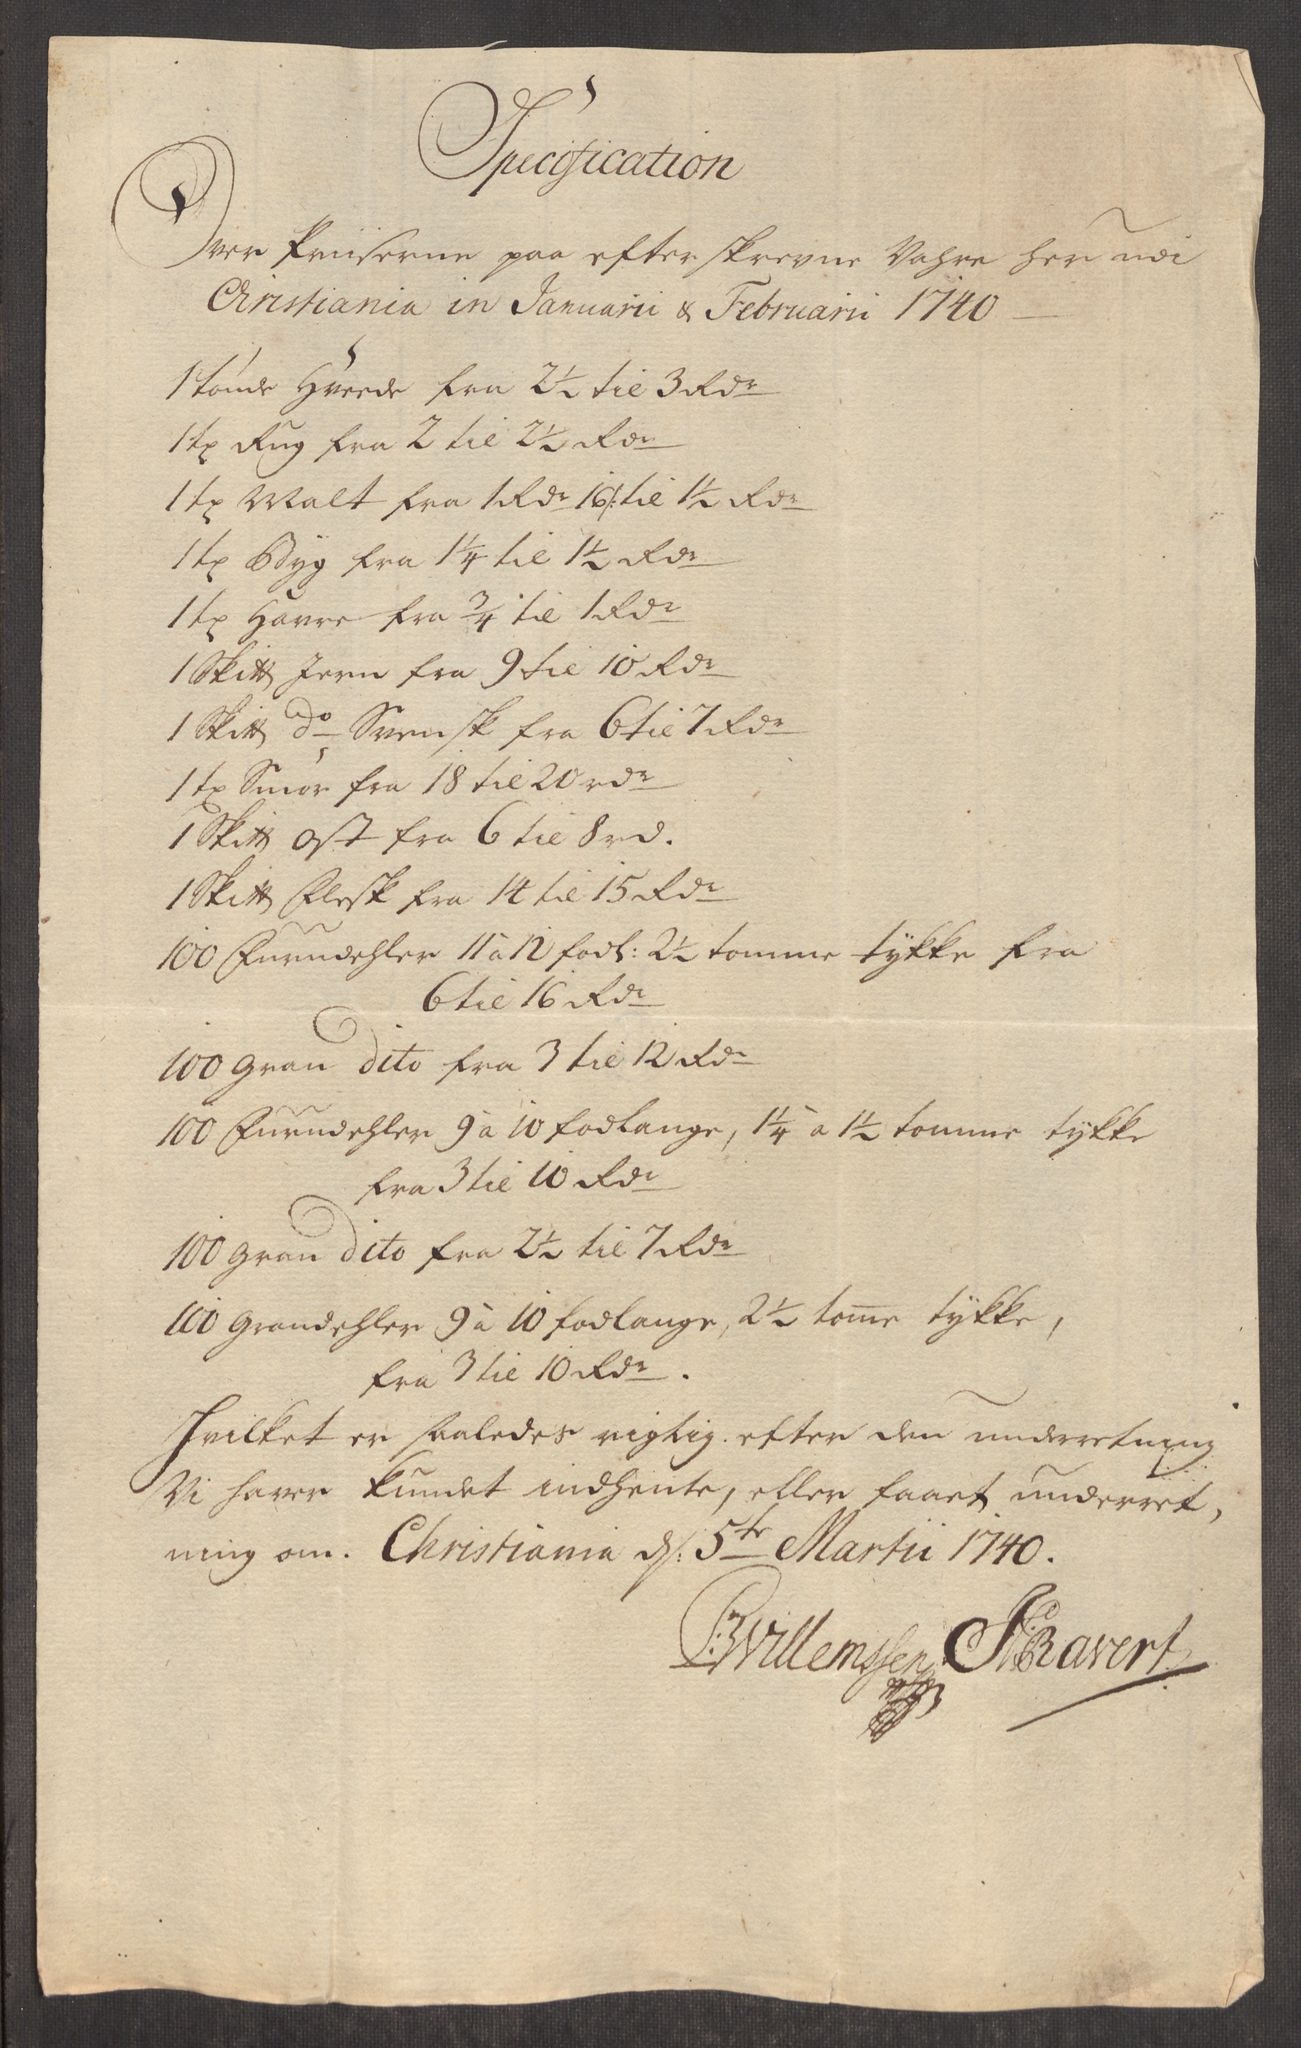 Specification
Over Priiserne paa efterskrevne Vahre her udi
Christiania in Januarii & Februarii 1740
1 tønde Hveede fra 2½ til 3 Rdr
1 tp Rug fra 2 til 2½ Rdr
1 tp Malt fra 1 Rdr 16 s: til 1½ Rdr
1 tp Byg fra 1¼ til 1½ Rdr
1 tp Havre fra ¾ til 1 Rdr
1 Skitt Jern fra 9 til 10 Rdr
1 Skitt do Svensk fra 6 til 7 Rdr
1 tp Smør fra 18 til 20 rdr
1 Skitt Ost fra 6 til 8 rd.
1 Skitt Flesk fra 14 til 15 Rdr
100 Furudehler 11 a 12 fodl: 2½ tomme tykke fra
6 til 16 Rdr
100 gran dito fra 3 til 12 Rdr
100 Furudehler 9 a 10 fodlange, 1¼ a 1½ tomme tykke
fra 3 til 10 Rdr
100 gran dito fra 2½ til 7 Rdr
100 grandehler 9 a 10 fodlange, 2½ tome tykke,
fra 3 til 10 Rdr.
Hvilket er saaledes rigtig efter den underretning
Vi haver kundet indhente, eller faaet underret,
ning om. Christiania ds: 5te Martii 1740.
Willemssen Ravert